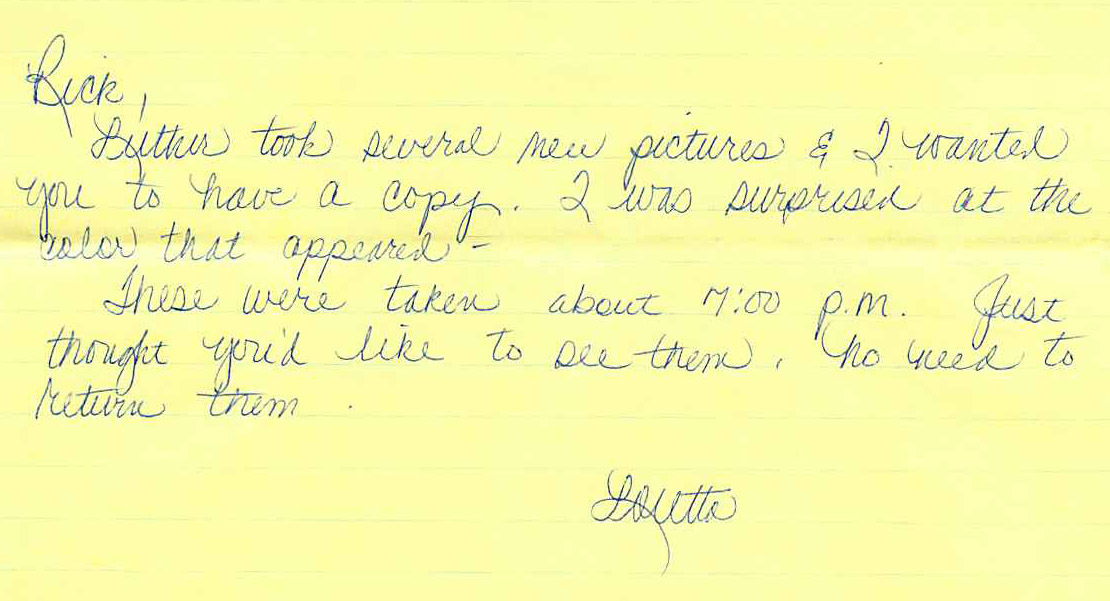 Rick,
Luther took several new pictures & I wanted
you to have a copy. I was surprised at the
color that appeared -
These were taken about 7:00 p.m. Just
thought you'd like to see them. No need to
return them.
Loretta